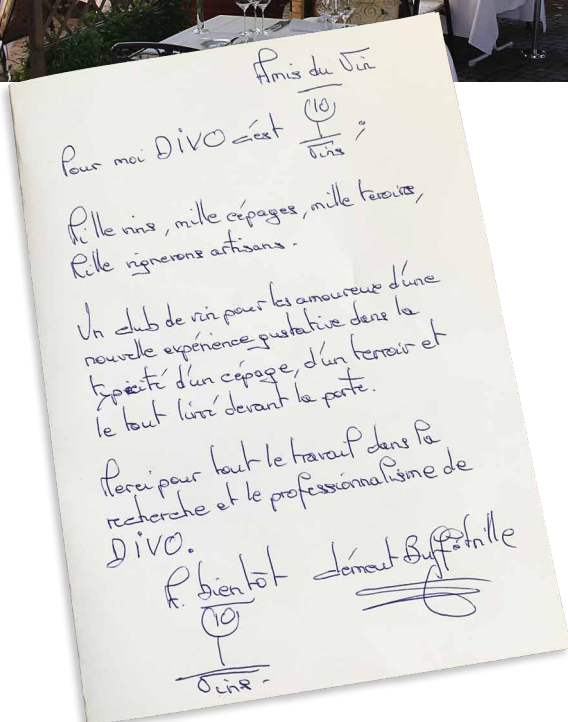 Amis du Vin
Pour moi DIVO c'est 10 Vins ;
Mille vins, mille cépages, mille terroirs,
Mille vignerons artisans.
Un club de vin pour les amoureux d'une
nouvelle expérience gustative dans la
typicité d'un cépage, d'un terroir et
le tout livré devant la porte.
Merci pour tout le travail dans la
recherche et le professionnalisme de
DIVO.
A bientôt Clément Buffetrille
10
Vins.